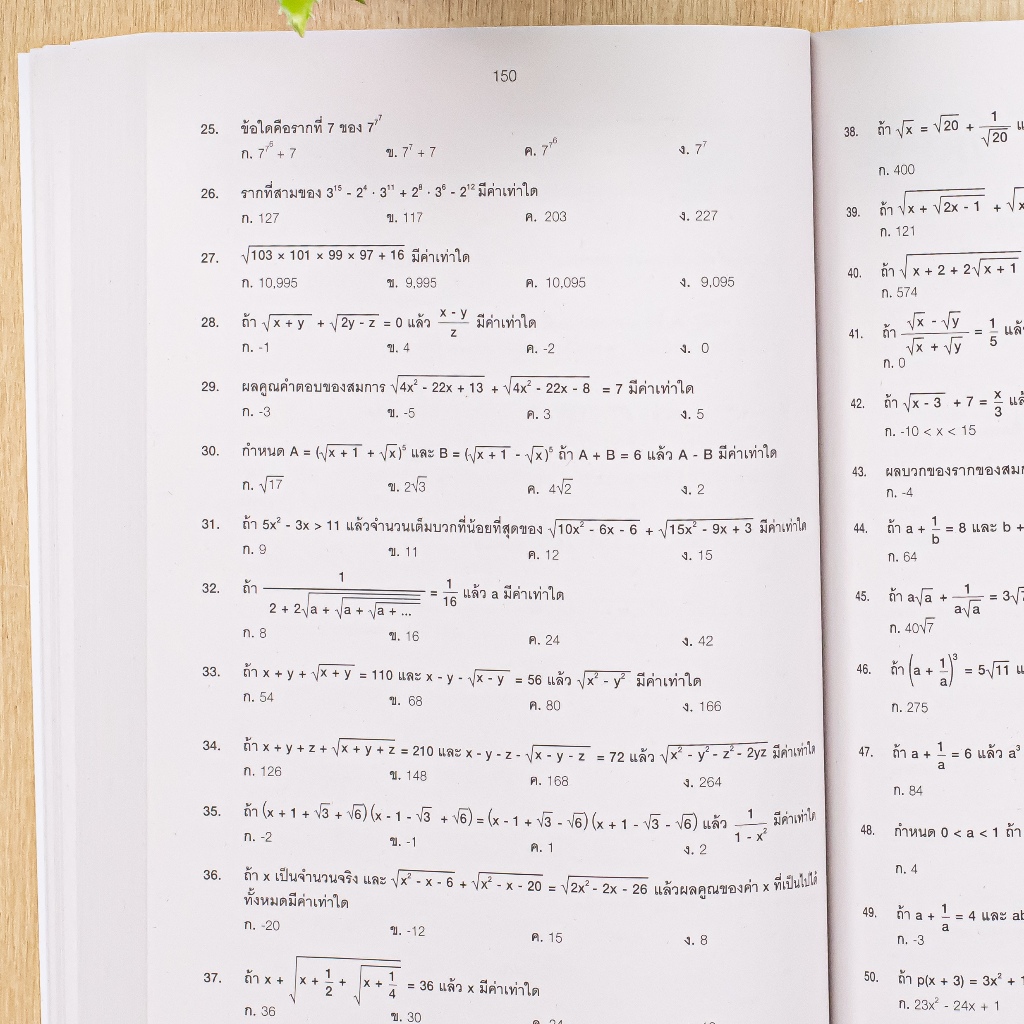 150
25. ข้อใดคือรากที่ 7 ของ 7^7^7
ก. 7^7^6 + 7 ข. 7^7 + 7 ค. 7^7^6 ง. 7^7
26. รากที่สามของ 3^15 - 2^4 · 3^11 + 2^8 · 3^6 - 2^12 มีค่าเท่าใด
ก. 127 ข. 117 ค. 203 ง. 227
27. √(103 × 101 × 99 × 97 + 16) มีค่าเท่าใด
ก. 10,995 ข. 9,995 ค. 10,095 ง. 9,095
28. ถ้า √(x + y) + √(2y - z) = 0 แล้ว (x - y)/z มีค่าเท่าใด
ก. -1 ข. 4 ค. -2 ง. 0
29. ผลคูณคำตอบของสมการ √(4x² - 22x + 13) + √(4x² - 22x - 8) = 7 มีค่าเท่าใด
ก. -3 ข. -5 ค. 3 ง. 5
30. กำหนด A = (√(x + 1) + √x)^5 และ B = (√(x + 1) - √x)^5 ถ้า A + B = 6 แล้ว A - B มีค่าเท่าใด
ก. √17 ข. 2√3 ค. 4√2 ง. 2
31. ถ้า 5x² - 3x > 11 แล้วจำนวนเต็มบวกที่น้อยที่สุดของ √(10x² - 6x - 6) + √(15x² - 9x + 3) มีค่าเท่าใด
ก. 9 ข. 11 ค. 12 ง. 15
32. ถ้า 1/(2 + 2√(a + √(a + √(a + ...)))) = 1/16 แล้ว a มีค่าเท่าใด
ก. 8 ข. 16 ค. 24 ง. 42
33. ถ้า x + y + √(x + y) = 110 และ x - y - √(x - y) = 56 แล้ว √(x² - y²) มีค่าเท่าใด
ก. 54 ข. 68 ค. 80 ง. 166
34. ถ้า x + y + z + √(x + y + z) = 210 และ x - y - z - √(x - y - z) = 72 แล้ว √(x² - y² - z² - 2yz) มีค่าเท่าใด
ก. 126 ข. 148 ค. 168 ง. 264
35. ถ้า (x + 1 + √3 + √6)(x - 1 - √3 + √6) = (x - 1 + √3 - √6)(x + 1 - √3 - √6) แล้ว 1/(1 - x²) มีค่าเท่าใด
ก. -2 ข. -1 ค. 1 ง. 2
36. ถ้า x เป็นจำนวนจริง และ √(x² - x - 6) + √(x² - x - 20) = √(2x² - 2x - 26) แล้วผลคูณของค่า x ที่เป็นไปได้
ทั้งหมดมีค่าเท่าใด
ก. -20 ข. -12 ค. 15 ง. 8
37. ถ้า x + √(x + 1/2 + √(x + 1/4)) = 36 แล้ว x มีค่าเท่าใด
ก. 36 ข. 30
38. ถ้า √x = √20 + 1/√20
ก. 400
39. ถ้า √(x + √(2x - 1)) +
ก. 121
40. ถ้า √(x + 2 + 2√(x + 1))
ก. 574
41. ถ้า (√x - √y)/(√x + √y) = 1/5
ก. 0
42. ถ้า √(x - 3) + 7 = x/3
ก. -10 < x < 15
43. ผลบวกของรากของสม
ก. -4
44. ถ้า a + 1/b = 8 และ b +
ก. 64
45. ถ้า a√a + 1/(a√a) =
ก. 40√7
46. ถ้า (a + 1/a)³ = 5√11
ก. 275
47. ถ้า a + 1/a = 6 แล้ว a³
ก. 84
48. กำหนด 0 < a < 1 ถ้า
ก. 4
49. ถ้า a + 1/a = 4 และ
ก. -3
50. ถ้า p(x + 3) = 3x² +
ก. 23x² - 24x + 1